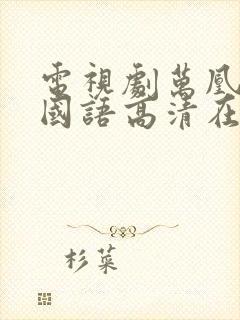 電視劇萬凰
國語高清在
杉菜